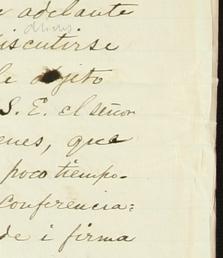 adelante
iscutirse
le objeto
S. E. el señor
enes, que
poco tiempo-
conferencia:
de i firma